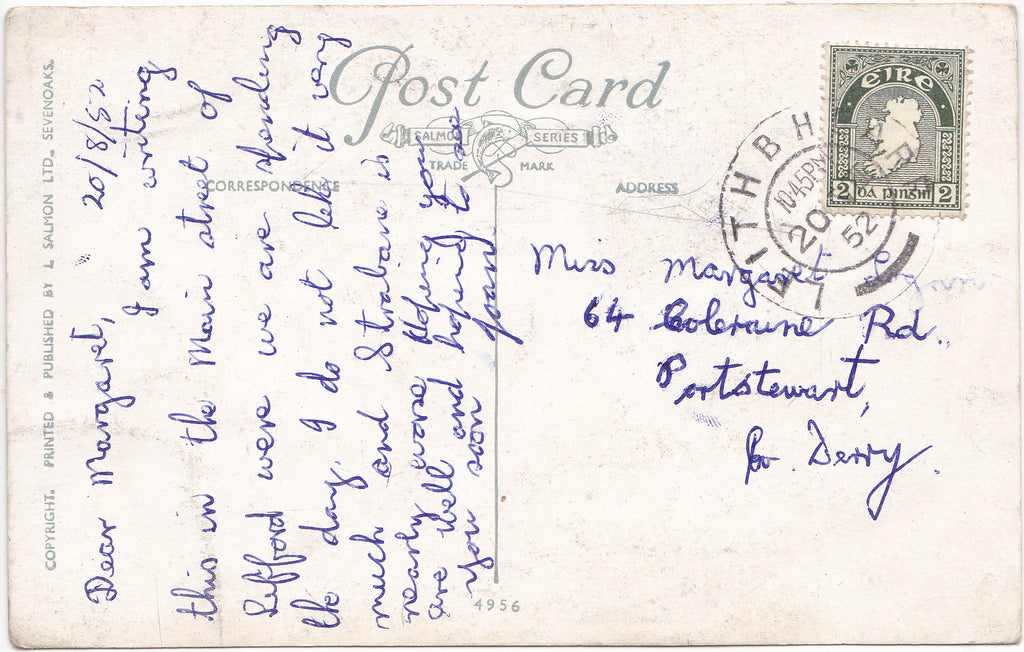 COPYRIGHT. PRINTED & PUBLISHED BY J. SALMON LTD., SEVENOAKS.
Post Card
SALMON SERIES
TRADE MARK
CORRESPONDENCE
ADDRESS
Dear Margaret, 20/8/52
I am writing
this in the Main street of
Lifford were we are spending
the day. I do not like it very
much and Strabane is
nearly worse Hoping you
are well and hoping to see
you soon Joan.
4956
EIRE
2 DÁ PINGIN 2
LEITHBHEARR
10.45PM
20
52
Miss Margaret
64 Coleraine Rd.
Portstewart,
Co. Derry.